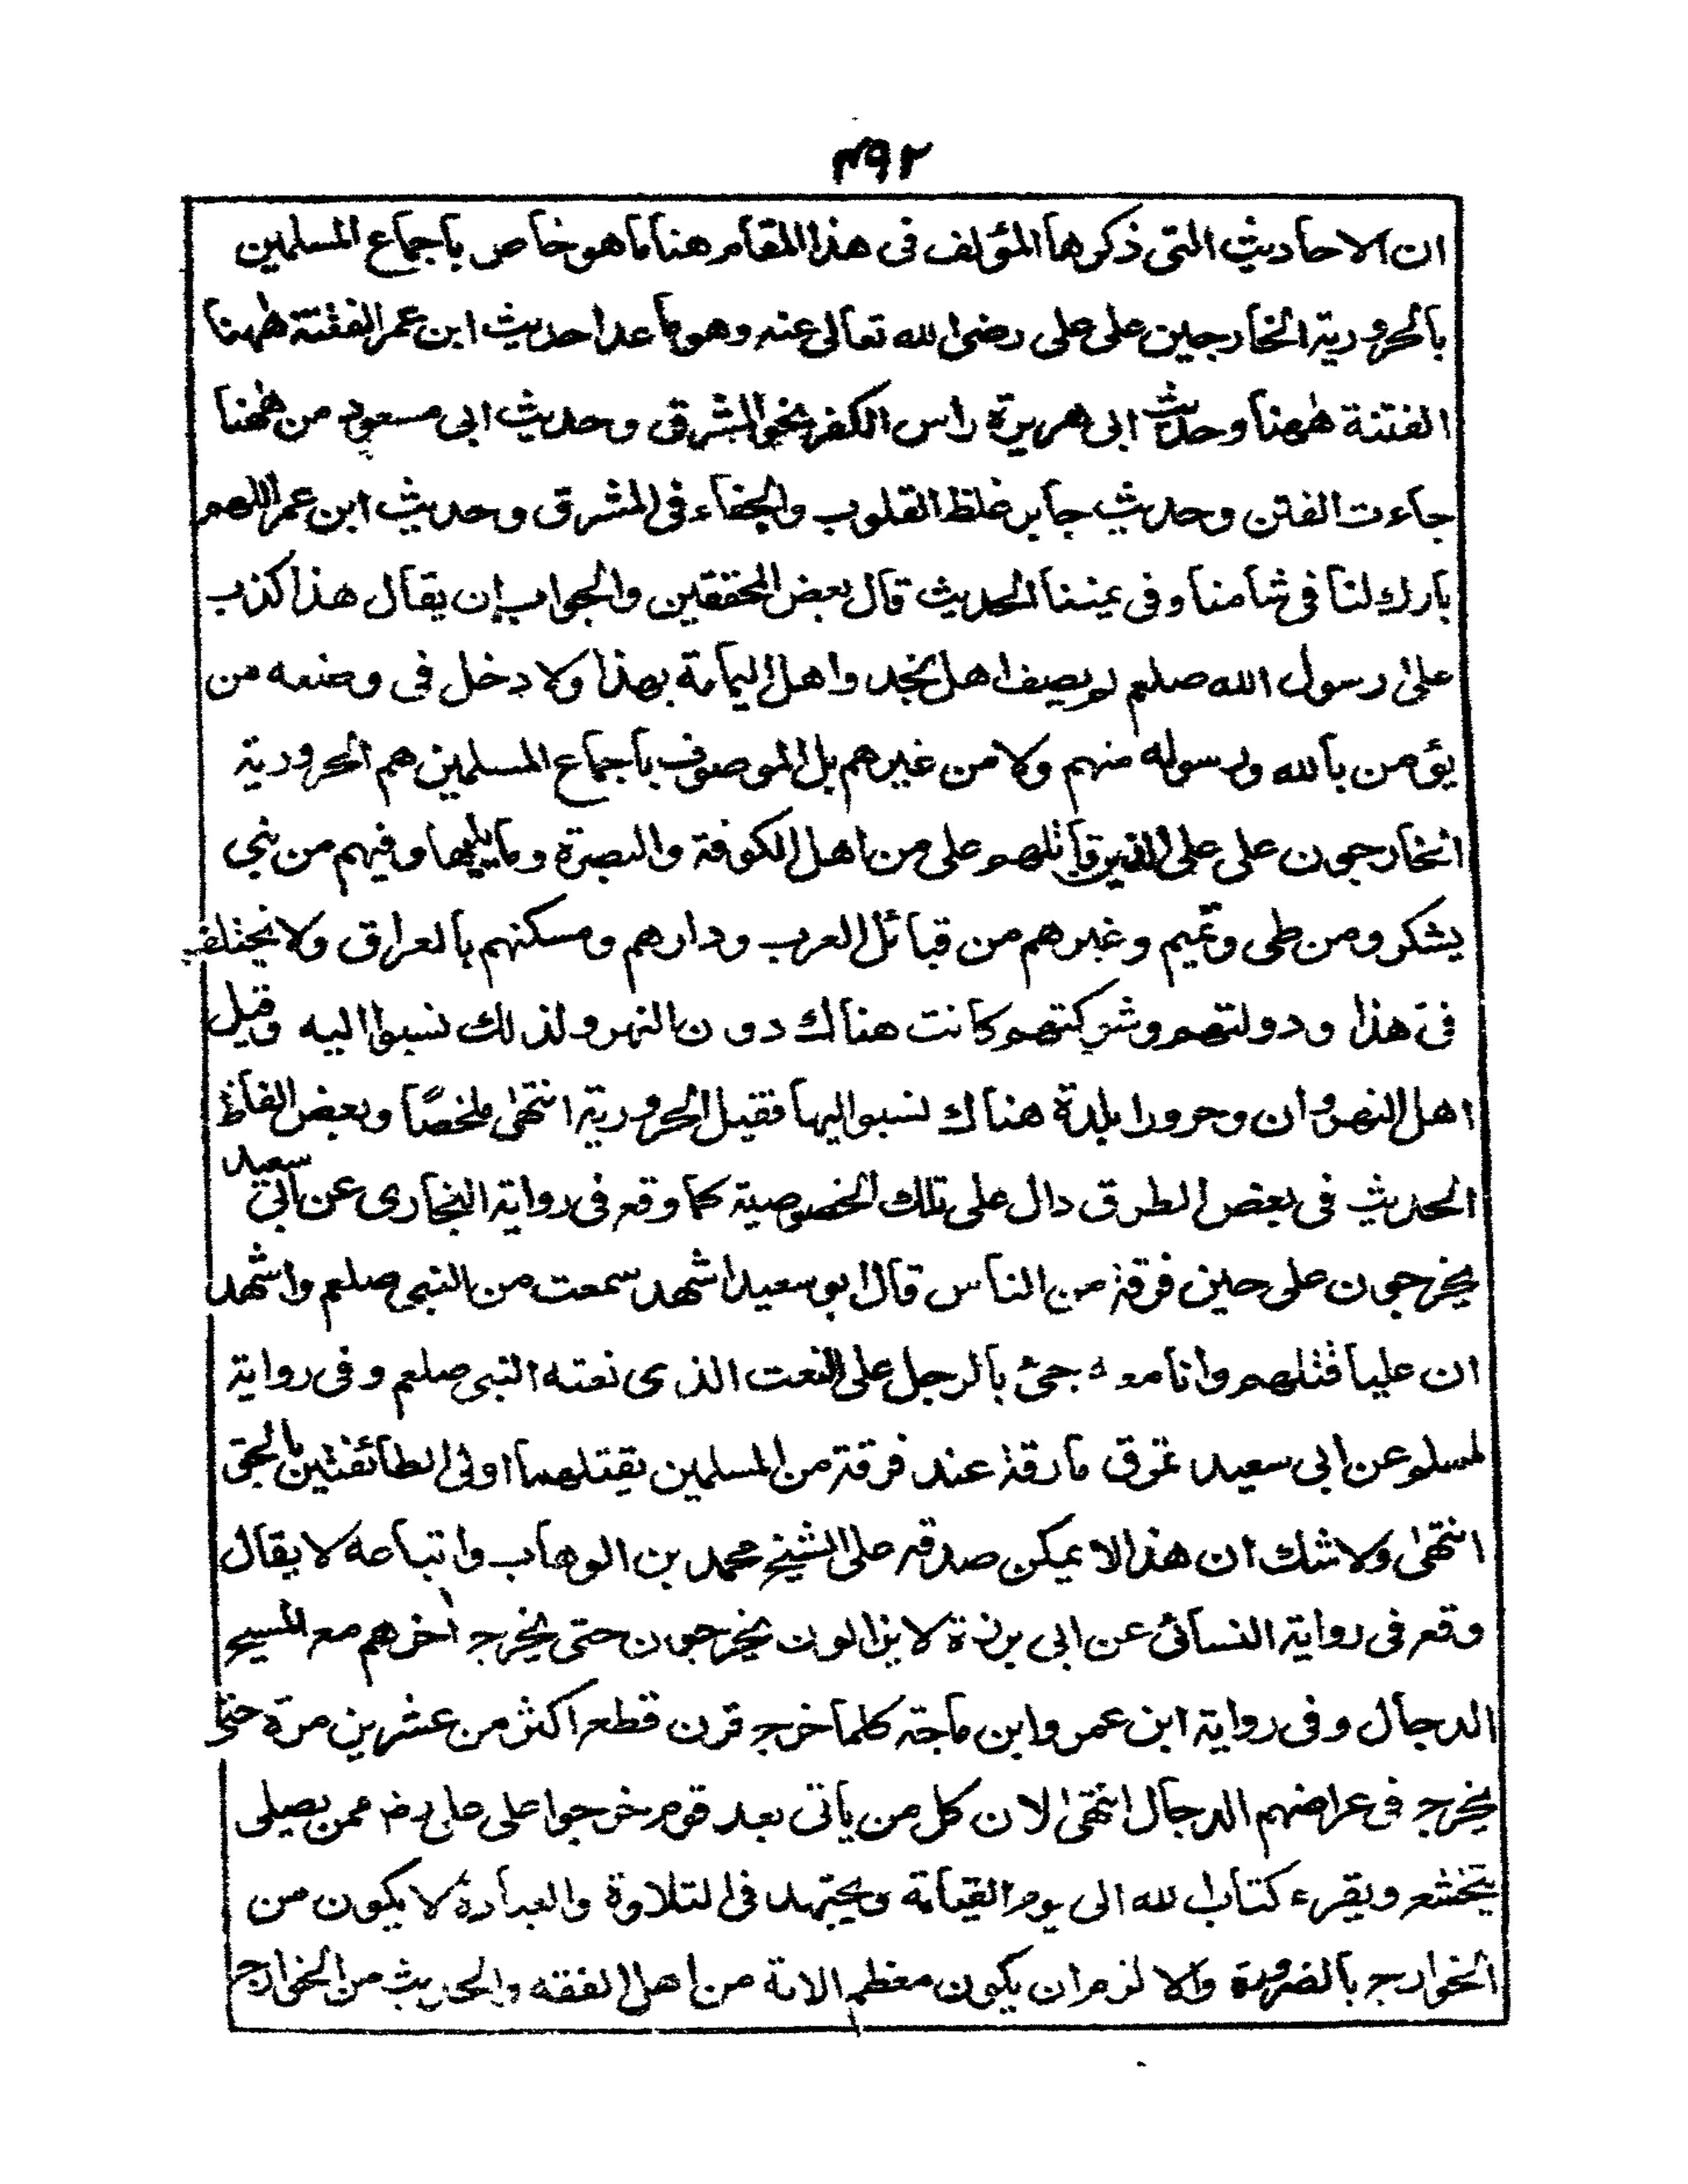 ٤٩٢
ان الاحاديث التى ذكرها المؤلف فى هذا المقام هنا ما هو خاص باجماع المسلمين
بالحرورية الخارجين على على رضى الله تعالى عنه وهو ما عدا حديث ابن عمر الفتنة ههنا
الفتنة ههنا وحديث ابى هريرة راس الكفر نحو المشرق وحديث ابى مسعود من ههنا
جاءت الفتن وحديث جابر غلظ القلوب والجفاء فى المشرق وحديث ابن عمر اللهم
بارك لنا فى شامنا وفى يمننا الحديث قال بعض المحققين والجواب ان يقال هذا كذب
على رسول الله صلعم لم يصف اهل نجد واهل اليمامة بهذا ولا دخل فى وصفه من
يؤمن بالله ورسوله منهم ولا من غيرهم بل الموصوف باجماع المسلمين هم الحرورية
الخارجون على على الذين قاتلهم على من اهل الكوفة والبصرة وما يليها وفيهم من بنى
يشكر ومن طى وتميم وغيرهم من قبائل العرب ودارهم ومسكنهم بالعراق ولا يختلف
فى هذا ودولتهم وشوكتهم كانت هناك دون النهر ولذلك نسبوا اليه وقيل
اهل النهروان وحرورا بلدة هناك نسبوا اليها فقيل الحرورية انتهى ملخصًا وبعض الفاظ
الحديث فى بعض الطرق دال على تلك الخصوصية كما وقع فى رواية البخارى عن ابى سعيد
يخرجون على حين فرقة من الناس قال ابو سعيد اشهد سمعت من النبى صلعم واشهد
ان عليا قتلهم وانا معه جئ بالرجل على النعت الذى نعته النبى صلعم وفى رواية
لمسلم عن ابى سعيد تمرق مارقة عند فرقة من المسلمين يقتلهما اولى الطائفتين بالحق
انتهى ولا شك ان هذا لا يمكن صدقه على الشيخ محمد بن الوهاب واتباعه لا يقال
وقع فى رواية النسائى عن ابى برزة لا يزالون يخرجون حتى يخرج اخرهم مع المسيح
الدجال وفى رواية ابن عمر وابن ماجة كلما خرج قرن قطع اكثر من عشرين مرة حتى
يخرج فى عراضهم الدجال انتهى لان كل من ياتى بعد قوم خرجوا على على رضـ ممن يصلى
يتخشع ويقرء كتاب الله الى يوم القيامة ويجتهد فى التلاوة والعبادة لا يكون من
الخوارج بالضرورة والا لزم ان يكون معظم الامة من اهل الفقه والحديث من الخوارج